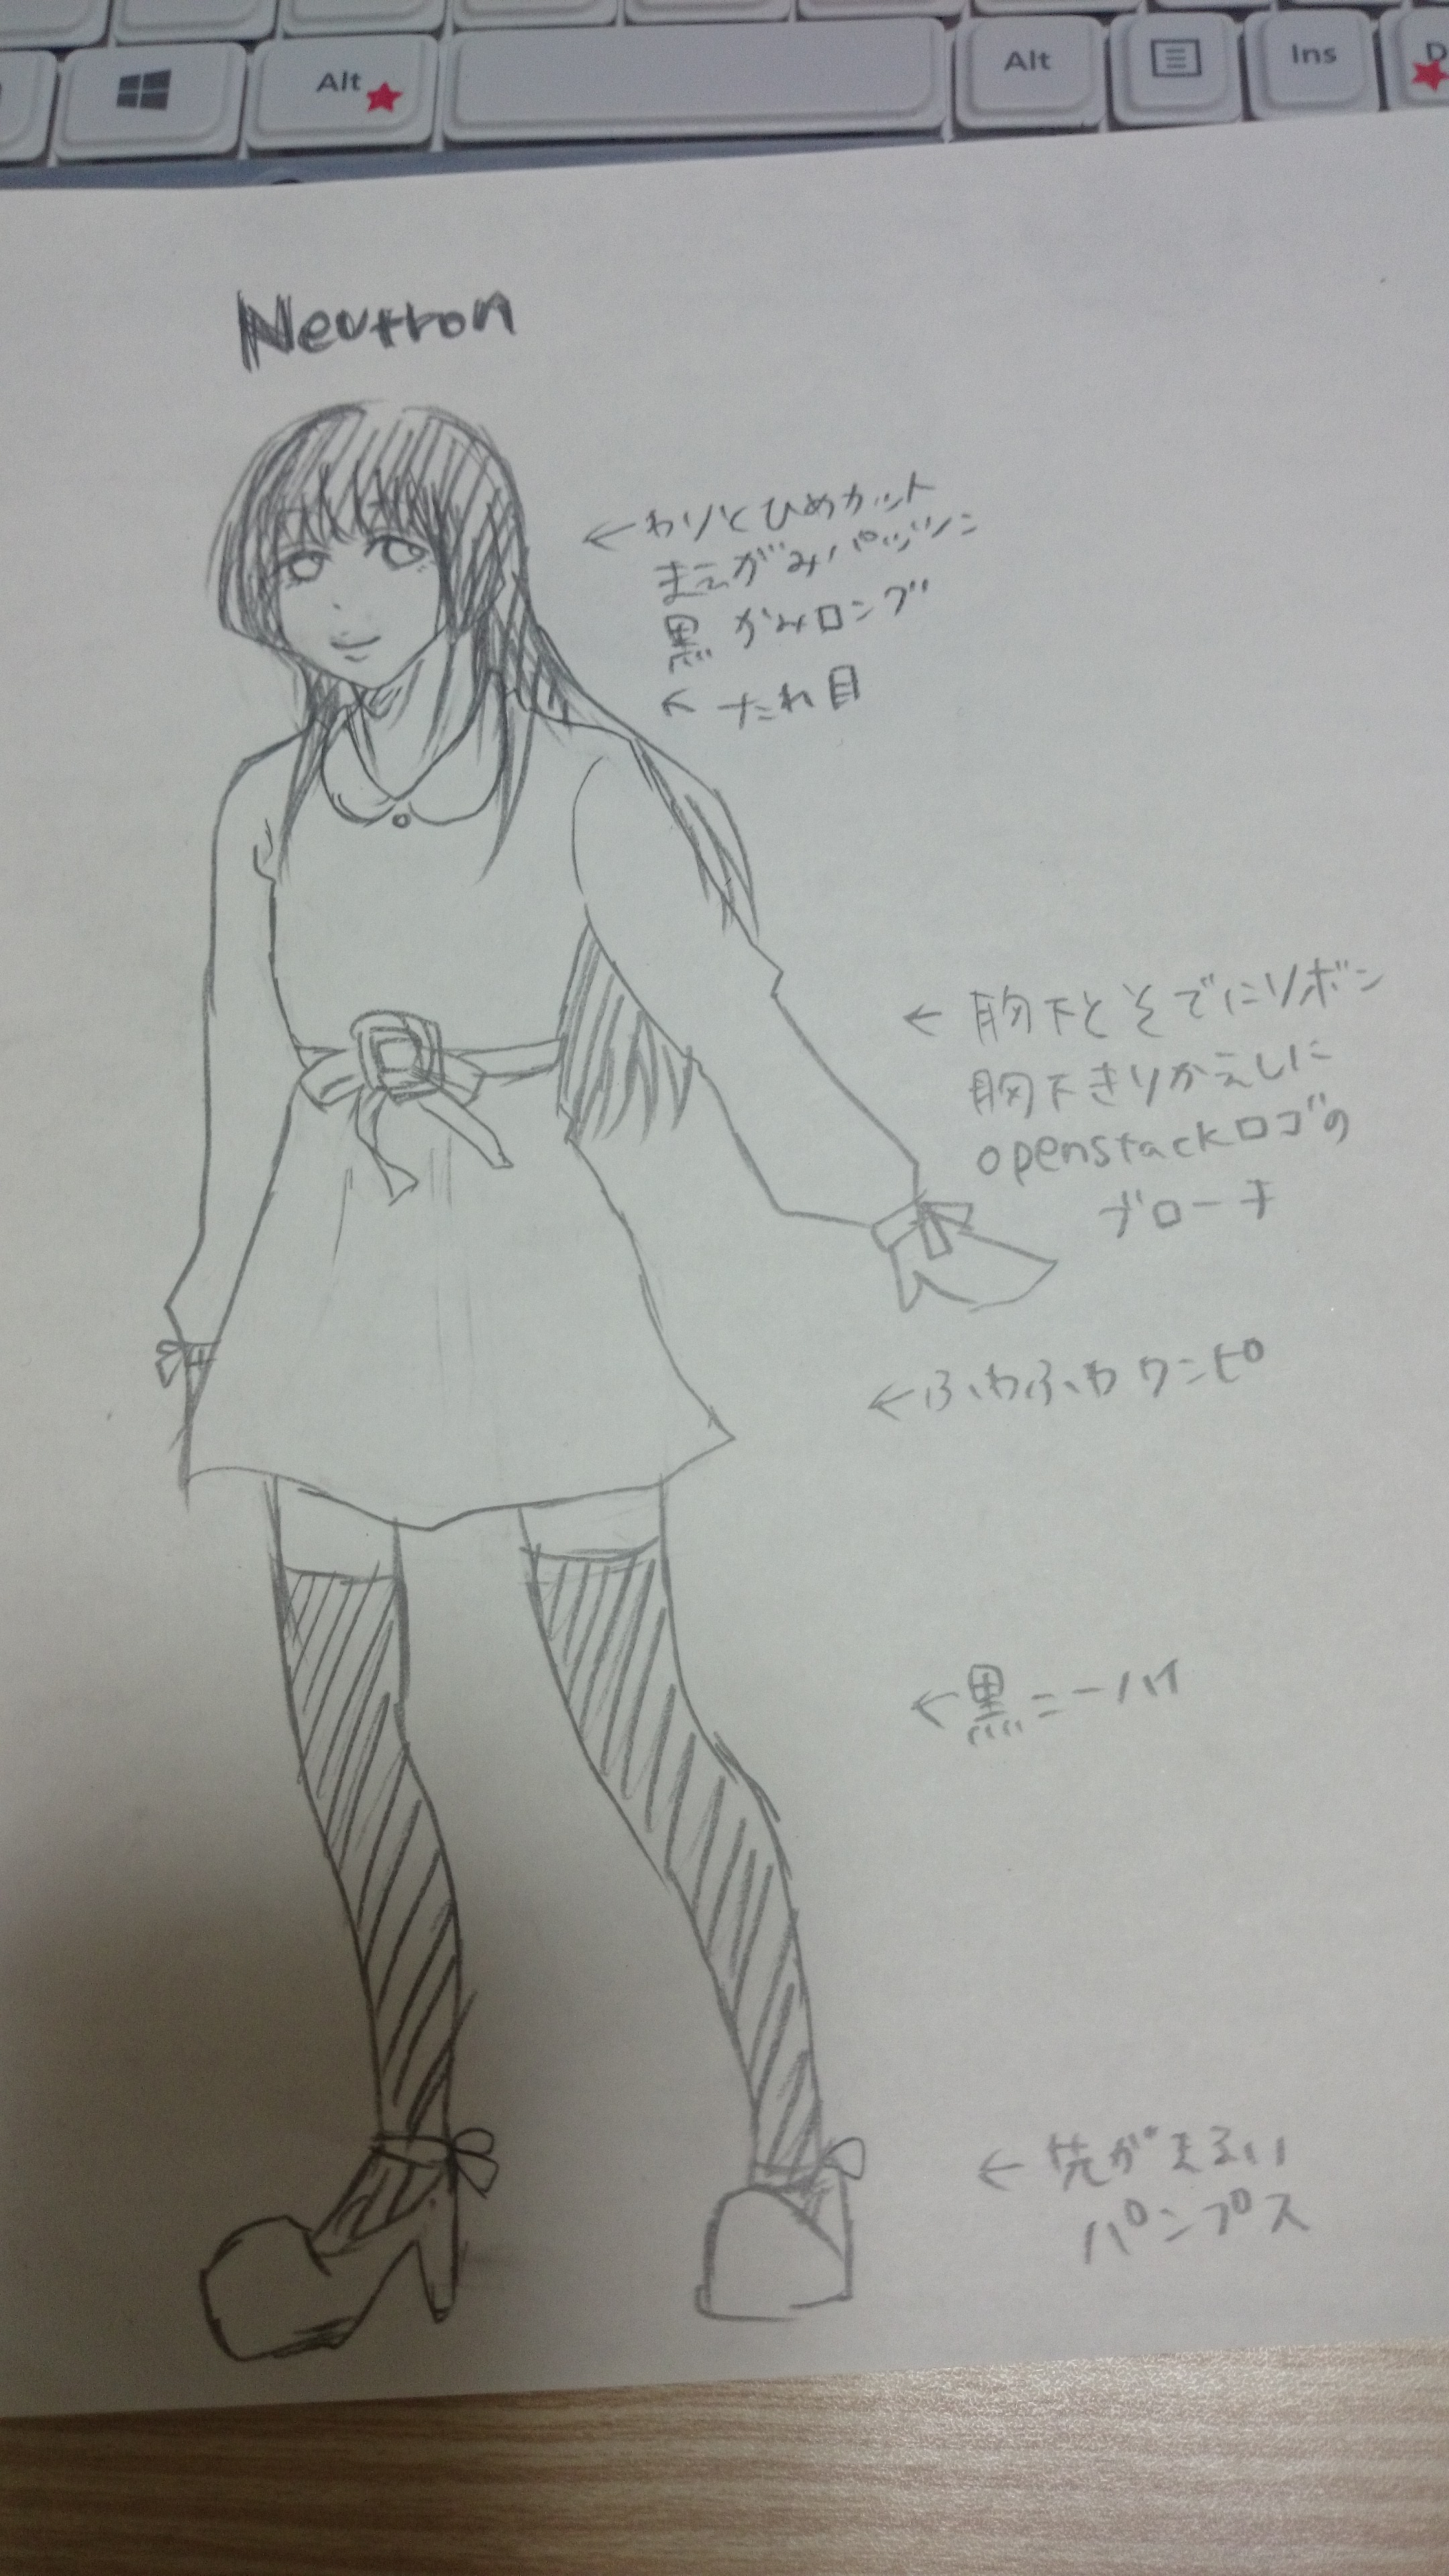 Alt
Alt
Ins
D
Neutron
←わりとひめカット
まえがみパッツン
黒がみロング
←たれ目
←胸下とそでにリボン
胸下きりかえしに
openstackロゴの
ブローチ
←ふわふわワンピ
←黒ニーハイ
←先がまるい
パンプス